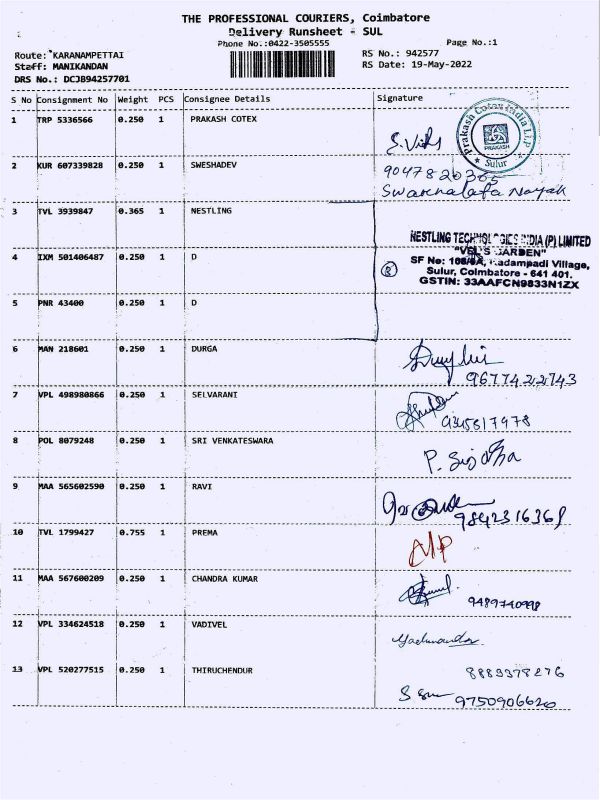 THE PROFESSIONAL COURIERS, Coimbatore
Delivery Runsheet - SUL
Phone No.:0422-3505555
Page No.:1
Route: KARANAMPETTAI
RS No.: 942577
Staff: MANIKANDAN
RS Date: 19-May-2022
DRS No.: DCJB94257701
S No Consignment No Weight PCS Consignee Details Signature
1 TRP 5336566 0.250 1 PRAKASH COTEX
Prakash Cotex India LLP
PRAKASH
Sulur
2 KUR 607339828 0.250 1 SWESHADEV
9047820365
Swarnalata Nayak
3 TVL 3939847 0.365 1 NESTLING
NESTLING TECHNOLOGIES INDIA (P) LIMITED
"VEL'S GARDEN"
4 IXM 501406487 0.250 1 D
SF No: 108/6A, Kadampadi Village,
Sulur, Coimbatore - 641 401.
GSTIN: 33AAFCN9833N1ZX
5 PNR 43400 0.250 1 D
6 MAN 218601 0.250 1 DURGA
9677422743
7 VPL 498980866 0.250 1 SELVARANI
9345617978
8 POL 8079248 0.250 1 SRI VENKATESWARA
9 MAA 565602590 0.250 1 RAVI
9842316361
10 TVL 1799427 0.755 1 PREMA
11 MAA 567600209 0.250 1 CHANDRA KUMAR
9489740998
12 VPL 334624518 0.250 1 VADIVEL
13 VPL 520277515 0.250 1 THIRUCHENDUR
8883378276
9750906620